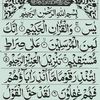 بِسْمِ اللَّهِ الرَّحْمَٰنِ الرَّحِيمِ
يسٓ وَالْقُرْآنِ الْحَكِيمِ إِنَّكَ
لَمِنَ الْمُرْسَلِينَ عَلَىٰ صِرَاطٍ
مُسْتَقِيمٍ تَنزِيلَ الْعَزِيزِ الرَّحِيمِ
لِتُنذِرَ قَوْمًا مَّا أُنذِرَ آبَاؤُهُمْ
فَهُمْ غَافِلُونَ لَقَدْ حَقَّ الْقَوْلُ